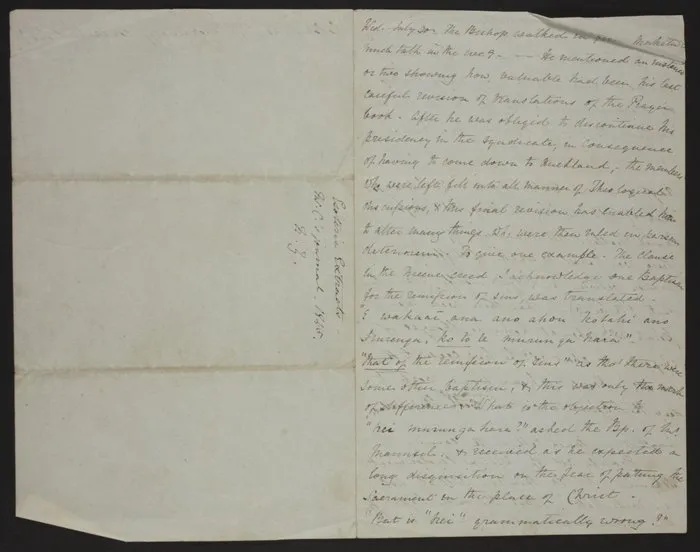 Extracts -
Mr. C's journal. 1846.
Wed. July 30. The Bishop walked in
much talk in the veg - - He mentioned an instance
or two showing how valuable had been his last
careful revision of translations of the Prayer
book. After he was obliged to discontinue his
presidency in the Syndicate, in consequence
of having to come down to Auckland, the members
who were left, fell into all manner of Theological
discussions, & this final revision has enabled him
to alter many things wh. were then ruled in
To give one example. The Clause
in the Nicene creed I acknowledge one Baptism
for the remission of sins, was translated -
"E wakaae ana ano ahau kotahi ano
Iriiringa, ko to te murunga hara"
"that of the remission of Sins" as tho' there were
some other baptism, & this was only the mark
of difference - What is the objection to
"hei murunga hara?" asked the Bp. of Mr.
Maunsell. & received as he expected a
long disquisition on the fear of putting the
Sacrament in the place of Christ -
"But is "hei" grammatically wrong?"